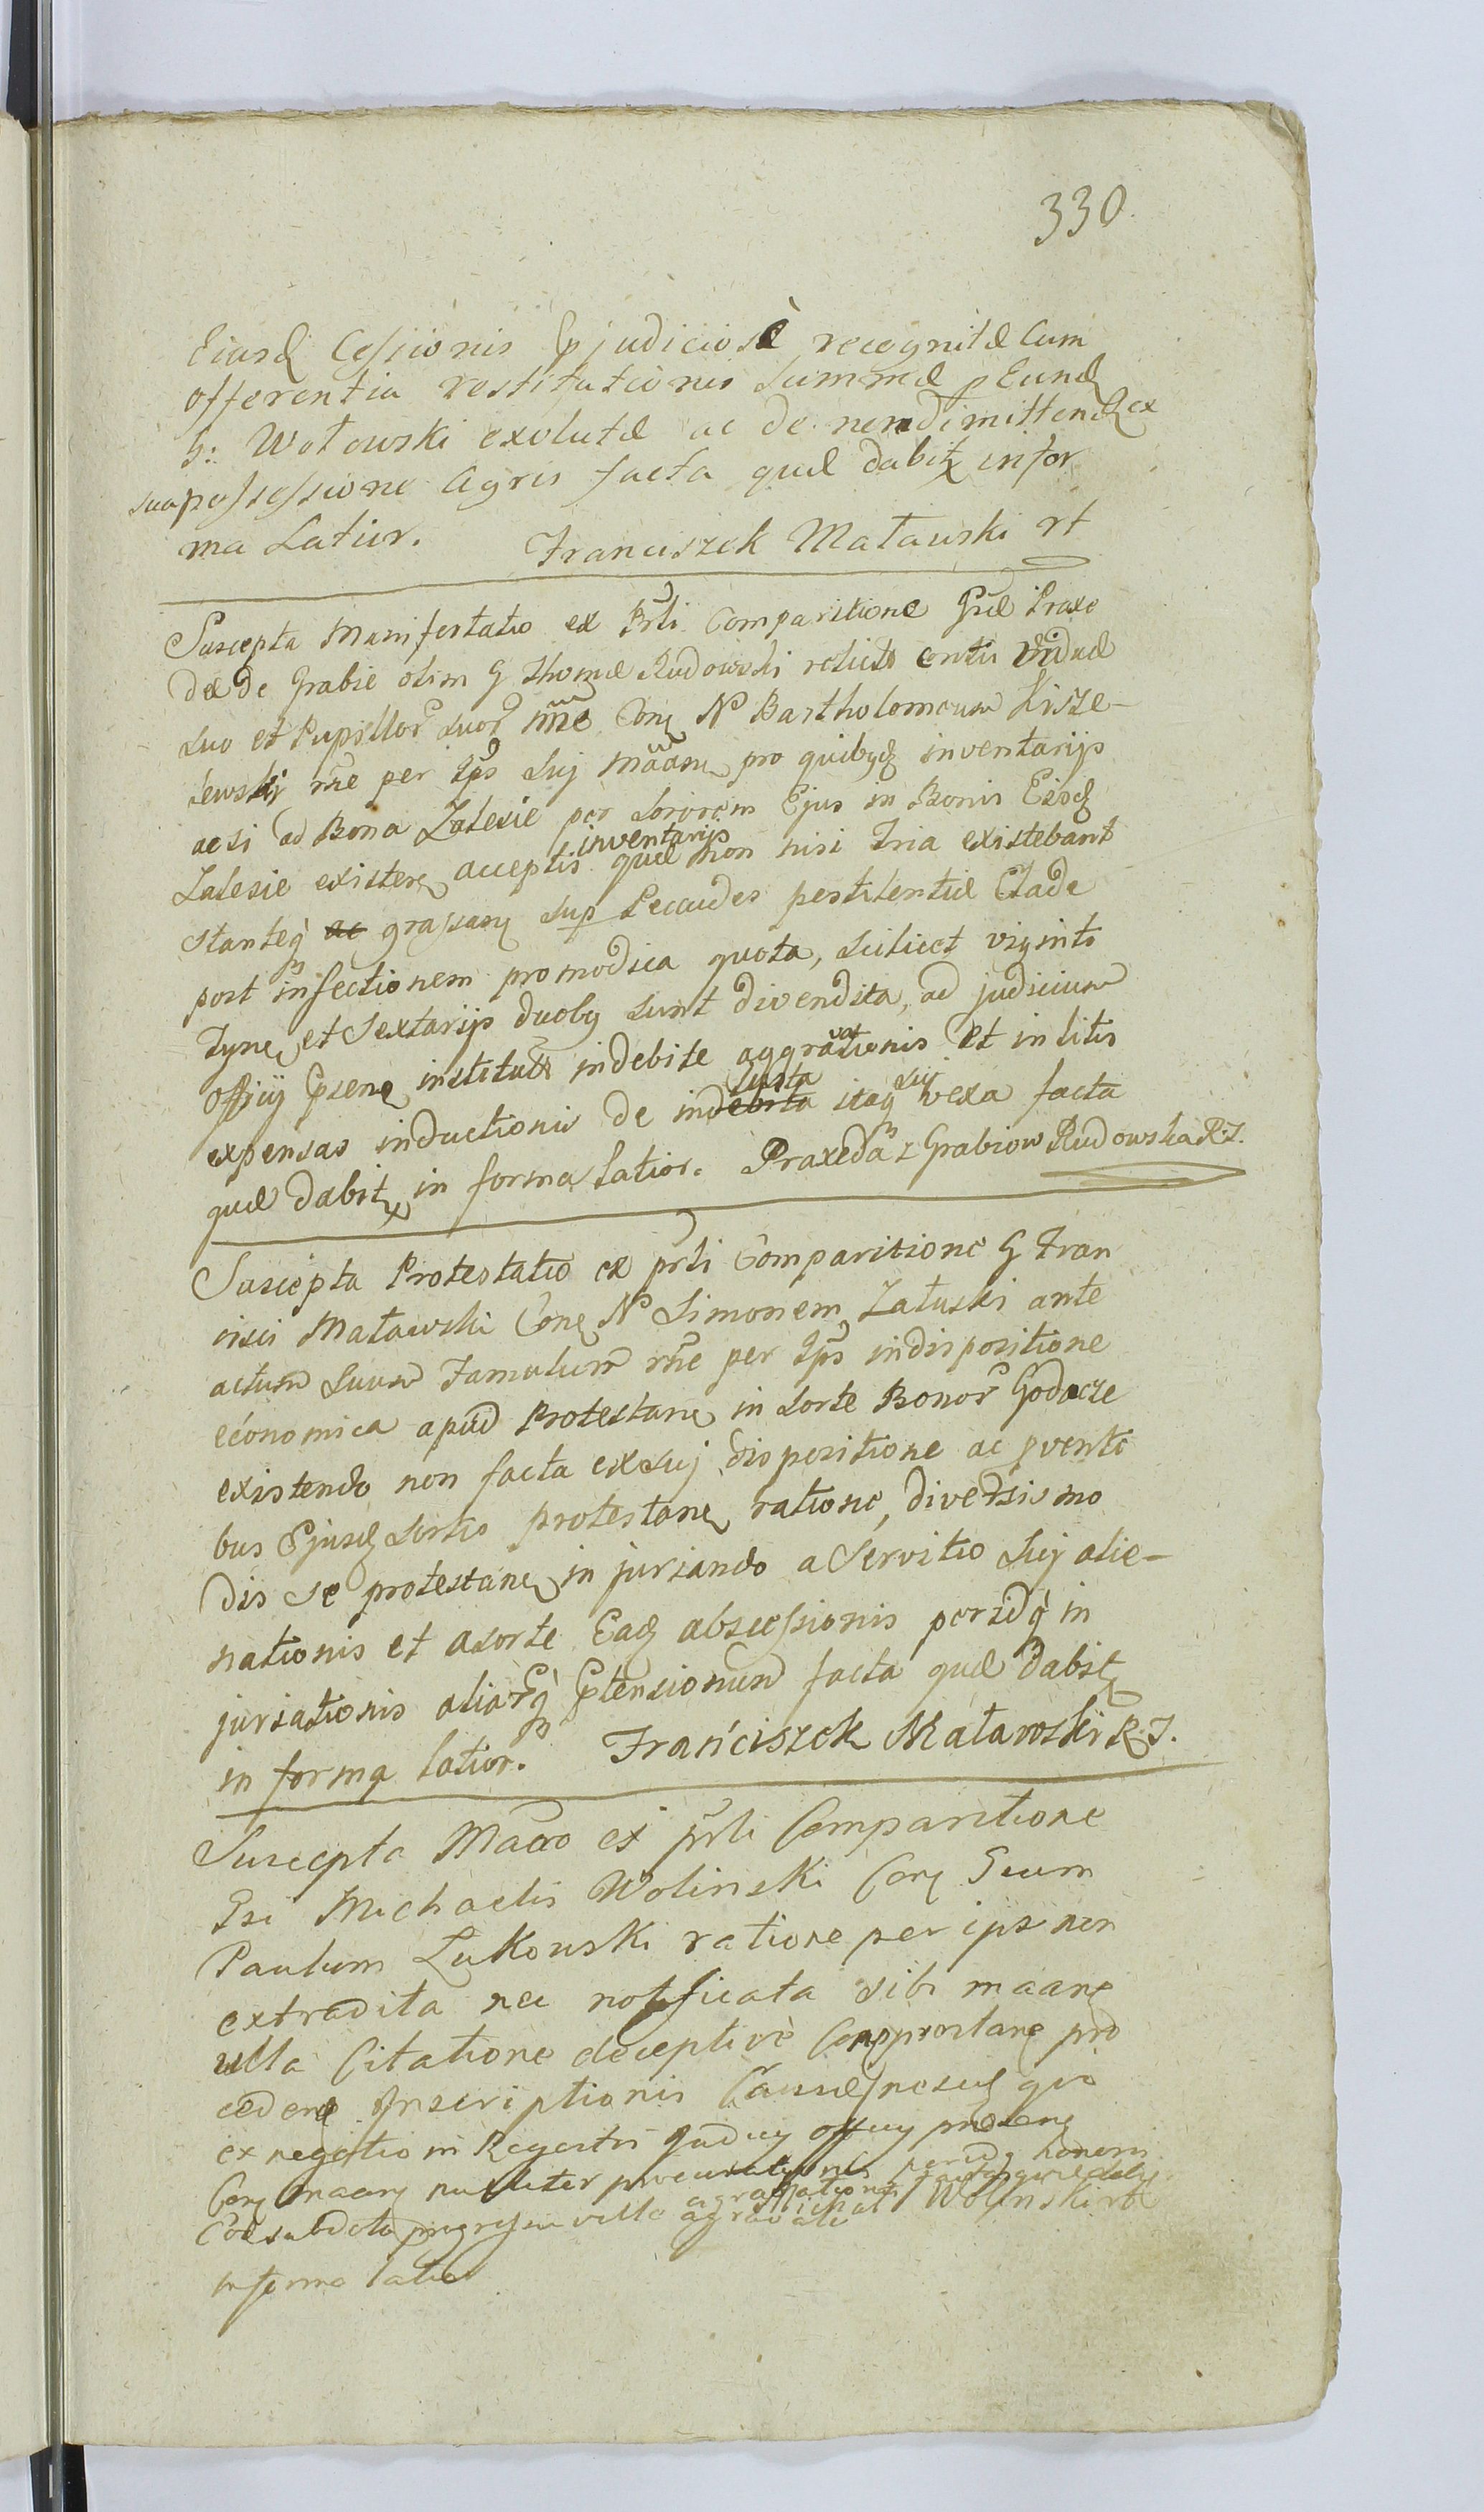 330.
Eiusd Cessionis Pjudiciosè recognitæ Cum
offerentia restitutionis Summæ p Eund
G: Wołowski exolutæ ac de nondimittend ex
sua possessione Agris facta quæ dabit infor
ma Latior. Franciszek Matawski rt
Suscepta Manifestatio ex Prli Comparitione Gsæ Praxe
dæ de Grabie olim G Thomæ Rudowski relictæ Viduæ
suo et Pupillor suor nne Con N Bartholomeum Lisze-
lewski rne per Ips Suj mãan pro quibusd inventarijs
acsi ad Bona Zalesie per Sororem Ejus in Bonis Eisd
Zalesie existen acceptis inventarijs quæ non nisi Tria existebant
stanteq ac grassan sup Pecudes pestilentiæ Clade
post infectionem pro modica quota, scilicet viginti
Tyne et Sextarijs duoby sunt divendita, ad judicium
Officij Psens institutæ indebite aggravationis Et in litis
expensas inductionis de indebita justa itaq sui vexa facta
quæ dabit in forma latior. Praxeda z Grabiow Rudowska R.I.
Suscepta Protestatio ex prli Comparitione G Fran
cisci Matawski Con N Simonem Załuski ante
actum Suum Famulum rne per Ips indispositione
economica apud Protestan in sorte Bonor Godacze
existendo non facta exsuj dispositione ac pventi
bus Ejusd Sortis protestan ratione, diversis mo
dis se protestan in juriando a Servitio Suj alie-
nationis et a sorte Ead abscessionis peridq in
juriationis aliarq Ptensionum facta quæ dabit
in forma latior. Franciszek Matawski R.I.
Suscepta Maão ex prli Comparitione
Gsi Michaelis Wolinski Con Gsum
Paulum Łukowski ratione per ips non
extradita nec notificata sibi maane
ulla Citatione deceptivè Conpprostane pro
cedene Inscriptionis Causæ quo
ex negotio in Regestri Judicy officy
Con maany nulliter procurationis peridq
Michał Wolinski rt
in forma latior